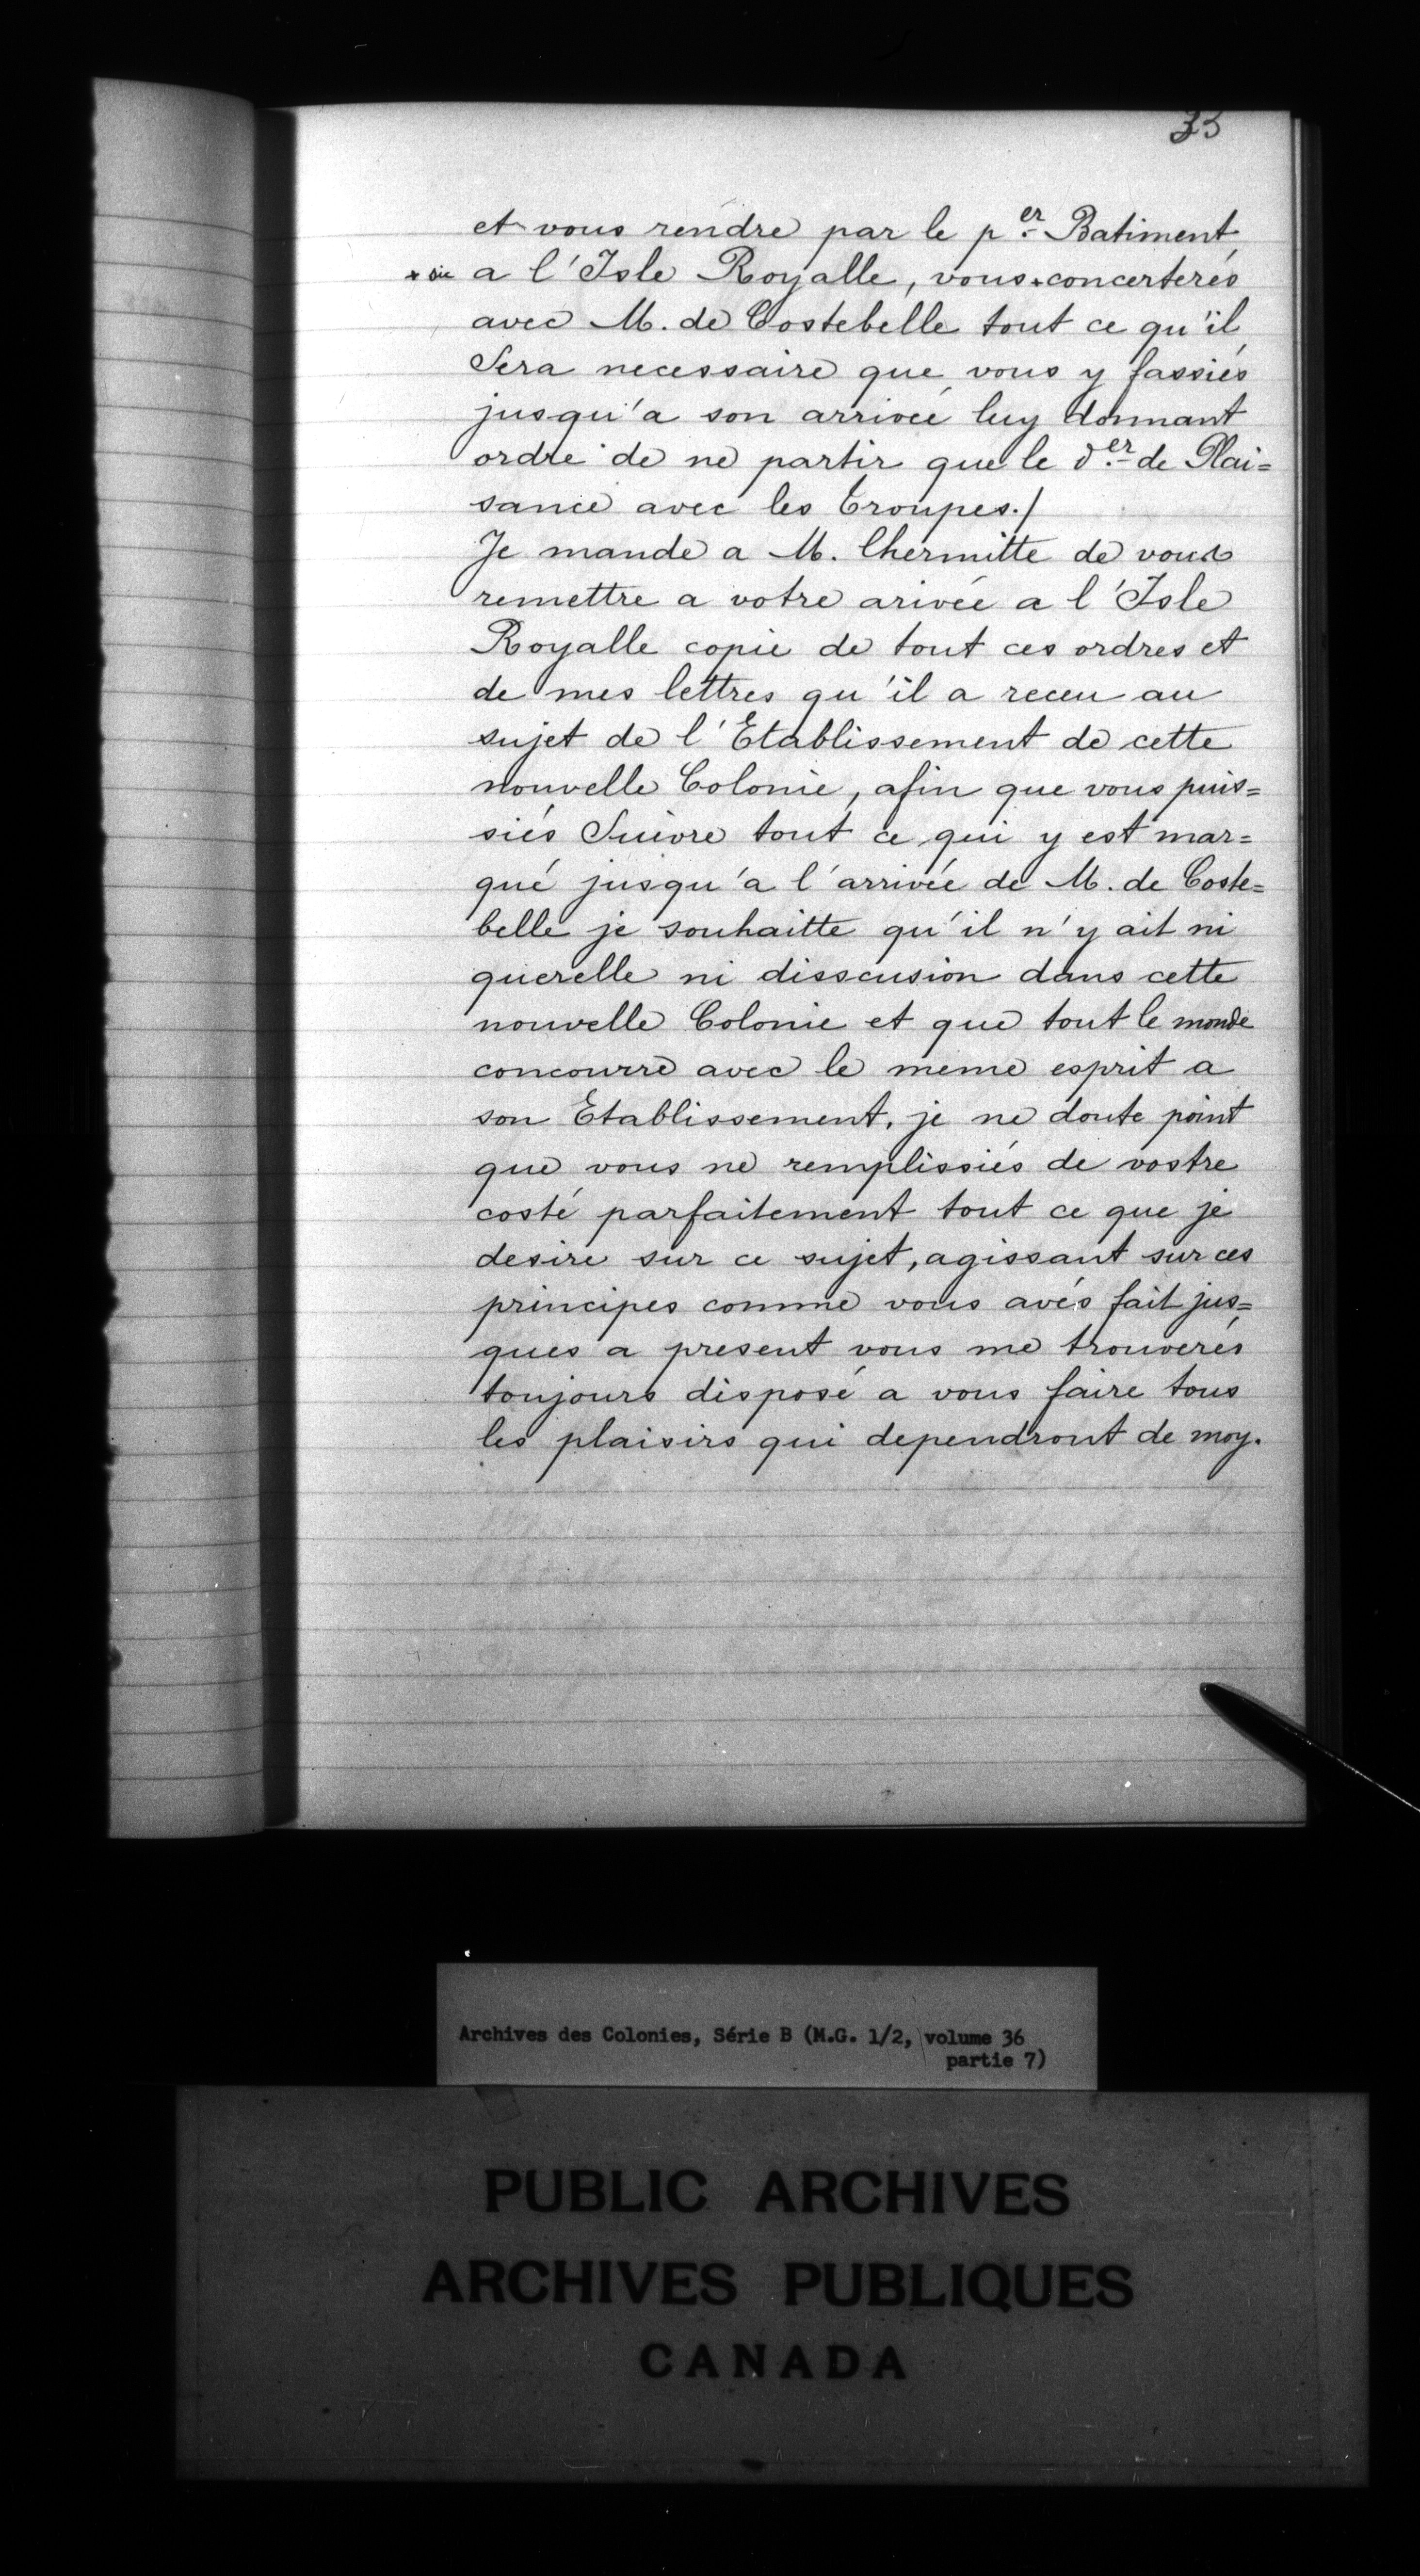 33
et vous rendre par le p.er Batiment
+ sic a l'Isle Royalle, vous + concerterés
avec M. de Costebelle tout ce qu'il
Sera necessaire que vous y fassiés
jusqu'a son arrivée luy donnant
ordre de ne partir que le d.er de Plai=
sance avec les troupes./
Je mande a M. lhermitte de vous
remettre a votre arivée a l'Isle
Royalle copie de tout ces ordres et
de mes lettres qu'il a receu au
sujet de l'Etablissement de cette
nouvelle Colonie, afin que vous puis=
siés Suivre tout ce qui y est mar=
qué jusqu'a l'arrivée de M. de Coste=
belle je souhaitte qu'il n'y ait ni
querelle ni disscusion dans cette
nouvelle Colonie et que tout le monde
concourre avec le meme esprit a
son Etablissement, je ne doute point
que vous ne remplissiés de vostre
costé parfaitement tout ce que je
desire sur ce sujet, agissant sur ces
principes comme vous avés fait jus=
ques a present vous me trouverés
toujours disposé a vous faire tous
les plaisirs qui dependront de moy.
Archives des Colonies, Série B (M.G. 1/2, volume 36
partie 7)
PUBLIC ARCHIVES
ARCHIVES PUBLIQUES
CANADA